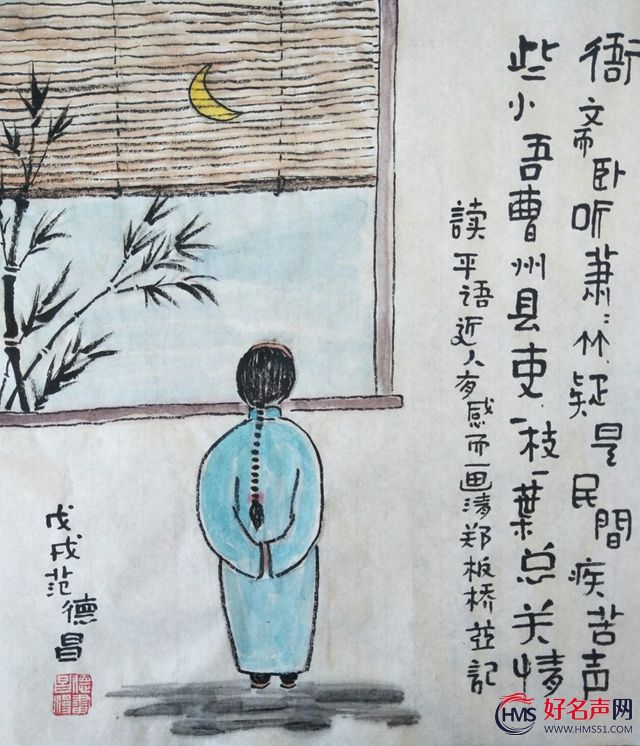 衙斋卧听萧〻竹疑是民間疾苦声
些小吾曹州县吏一枝一葉总关情
读平语近人有感而画清郑板桥並記
戊戌范德昌
HMS 好名声网
WWW.HMS51.COM